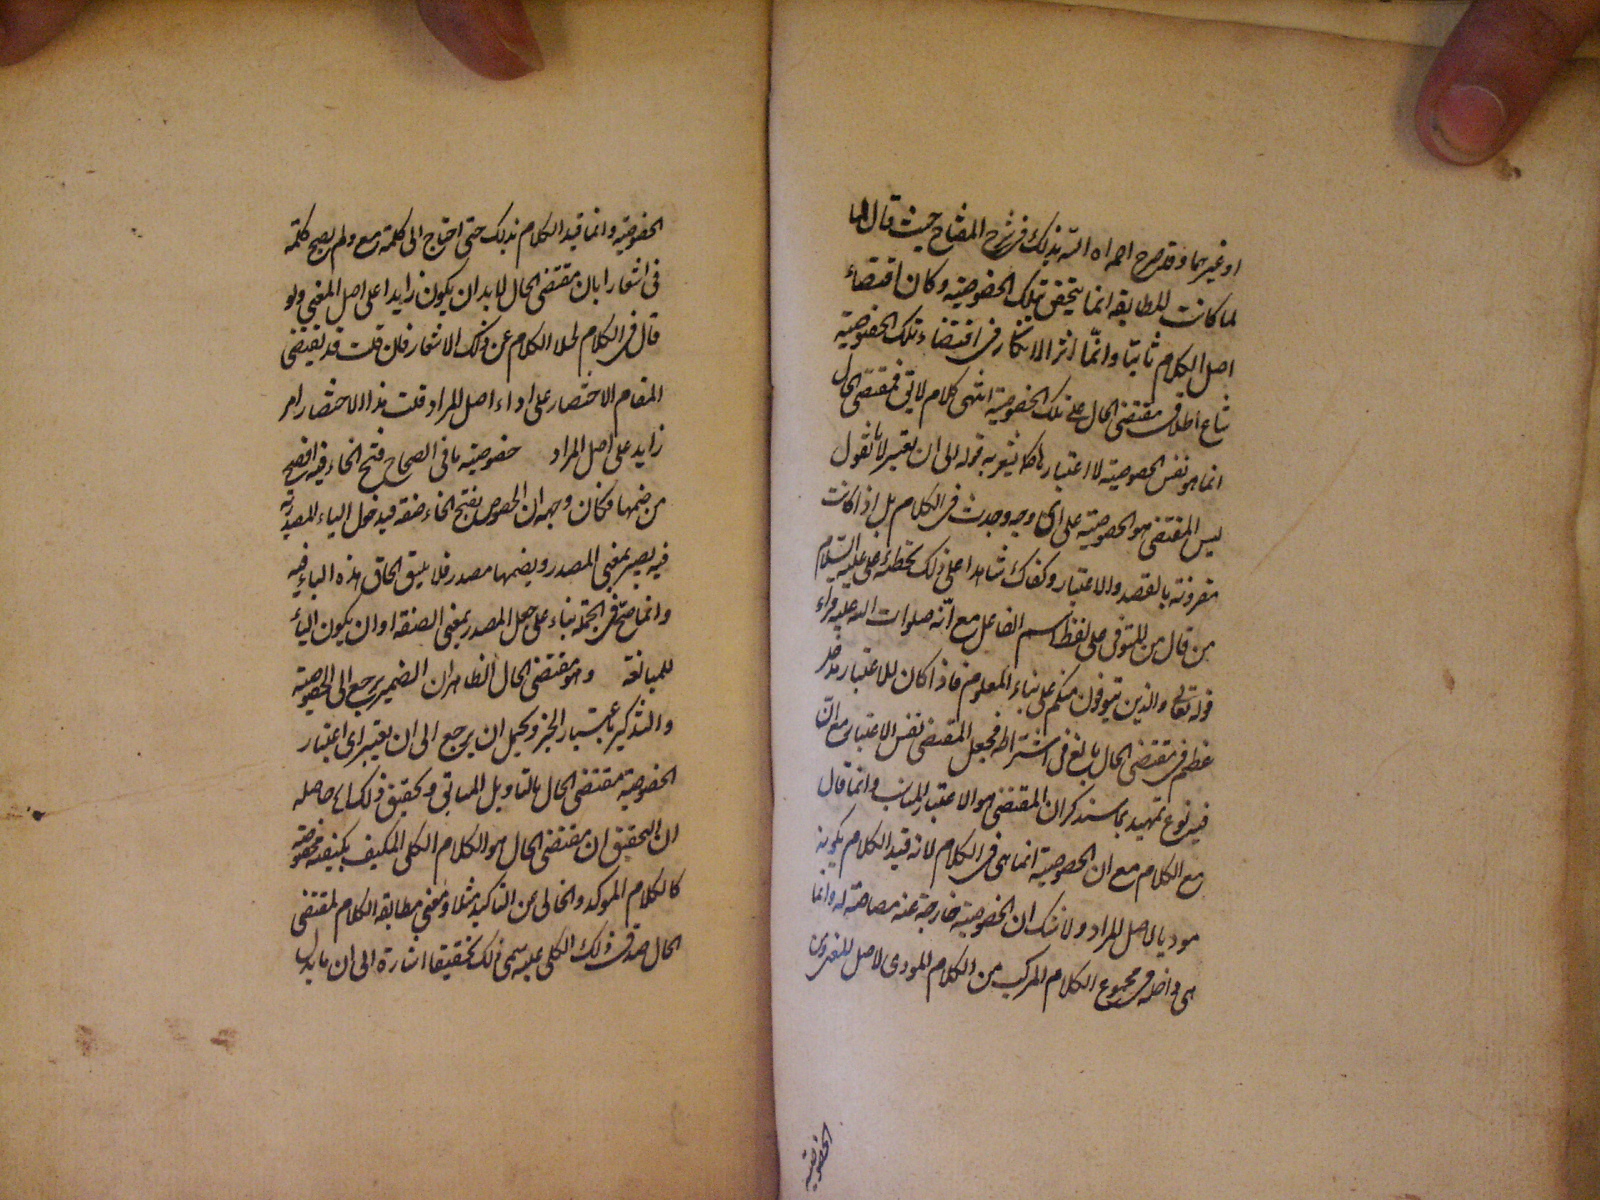 او غيرهما وقد صرح اجراه الله بذلك في شرح المفتاح حيث قال لها
لما كانت المطابقة انما يتحقق بتلك الخصوصية وكان اقتضاء
اصل الكلام ثابتا وانما اثر الانكار في اقتضاء تلك الخصوصية
شاع اطلاق مقتضى الحال على تلك الخصوصية انتهى كلام لايق فمقتضى الحال
انما هو نفس الخصوصية لا اعتبارها كما يشعر به قوله الى ان يعتبر لانا نقول
ليس المقتضى هو الخصوصية على اى وجه وجدت في الكلام بل اذا كانت
مقرونة بالقصد والاعتبار وكفاك شاهدا على ذلك تخطئة على عليه السلام
من قال من المتوفى على لفظ اسم الفاعل مع انه صلوات الله عليه قراء
قوله تعالى والذين يتوفون منكم على بناء المعلوم فاذا كان للاعتبار مدخل
عظيم في مقتضى الحال بالغ في اشتراطه فجعل المقتضى نفس الاعتبار مع ان
فيه نوع تمهيد بما سنذكر ان المقتضى هو الاعتبار المناسب وانما قال
مع الكلام مع ان الخصوصية انما هى في الكلام لانه قيد الكلام بكونه
موديا لاصل المراد ولا شك ان الخصوصية خارجة عنه مصاحبة له وانما
هى داخلة في مجموع الكلام المركب من الكلام المودى لاصل المعنى ومن
الخصوصية
الخصوصية وانما قيد الكلام بذلك حتى احتاج الى كلمة مع ولم يصح كلمة
في اشعارا بان مقتضى الحال لابد ان يكون زايدا على اصل المعنى ولو
قال في الكلام لخلا الكلام عن ذلك الاشعار فان قلت قد يقتضى
المقام الاختصار على اداء اصل المراد قلت هذا الاختصار امر
زايد على اصل المراد خصوصية ما في الصحاح فتح الخاء فيه افصح
من ضمها وكان وجهه ان الخصوص بفتح الخاء صفة فبدخول الياء المصدرية
فيه يصير بمعنى المصدر وبضمها مصدر فلا يليق الحاق هذه الياء فيه
وانما صح في الجملة بناء على جعل المصدر بمعنى الصفة او ان يكون الياء
للمبالغة وهو مقتضى الحال الظاهر ان الضمير يرجع الى الخصوصية
والتذكير باعتبار الخبر ويحتمل ان يرجع الى ان يعتبر اى اعتبار
الخصوصية مقتضى الحال بالتاويل السابق وتحقيق ذلك اه حاصله
ان التحقيق ان مقتضى الحال هو الكلام الكلى المكيف بكيفية مخصوصة
كالكلام الموكد والخالى من التاكيد مثلا ومعنى مطابقة الكلام لمقتضى
الحال صدق ذلك الكلى عليه سمى ذلك تحقيقا اشارة الى ان ما يدل